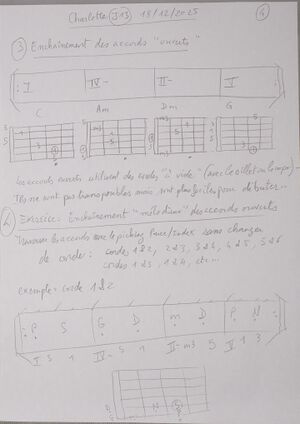 Charlotte J13 18/12/2025
③ Enchaînement des accords "ouverts"
I VI- II- V
C Am Dm G
Les accords ouverts utilisent des cordes "à vide" (avec le sillet ou le capo)
Ils ne sont pas transposables mais sont plus faciles pour débuter...
④ Exercice: Enchaînement "mélodique" des accords ouverts
Travailler les accords avec le picking Pouce/index sans changer
de cordes: cordes 1&2, 2&3, 3&4, 4&5, 5&6
cordes 1&3, 1&4, etc...
exemple: corde 1&2
P S G D m D P N
I 5 1 VI- 5 1 II- m3 5 V 1 3